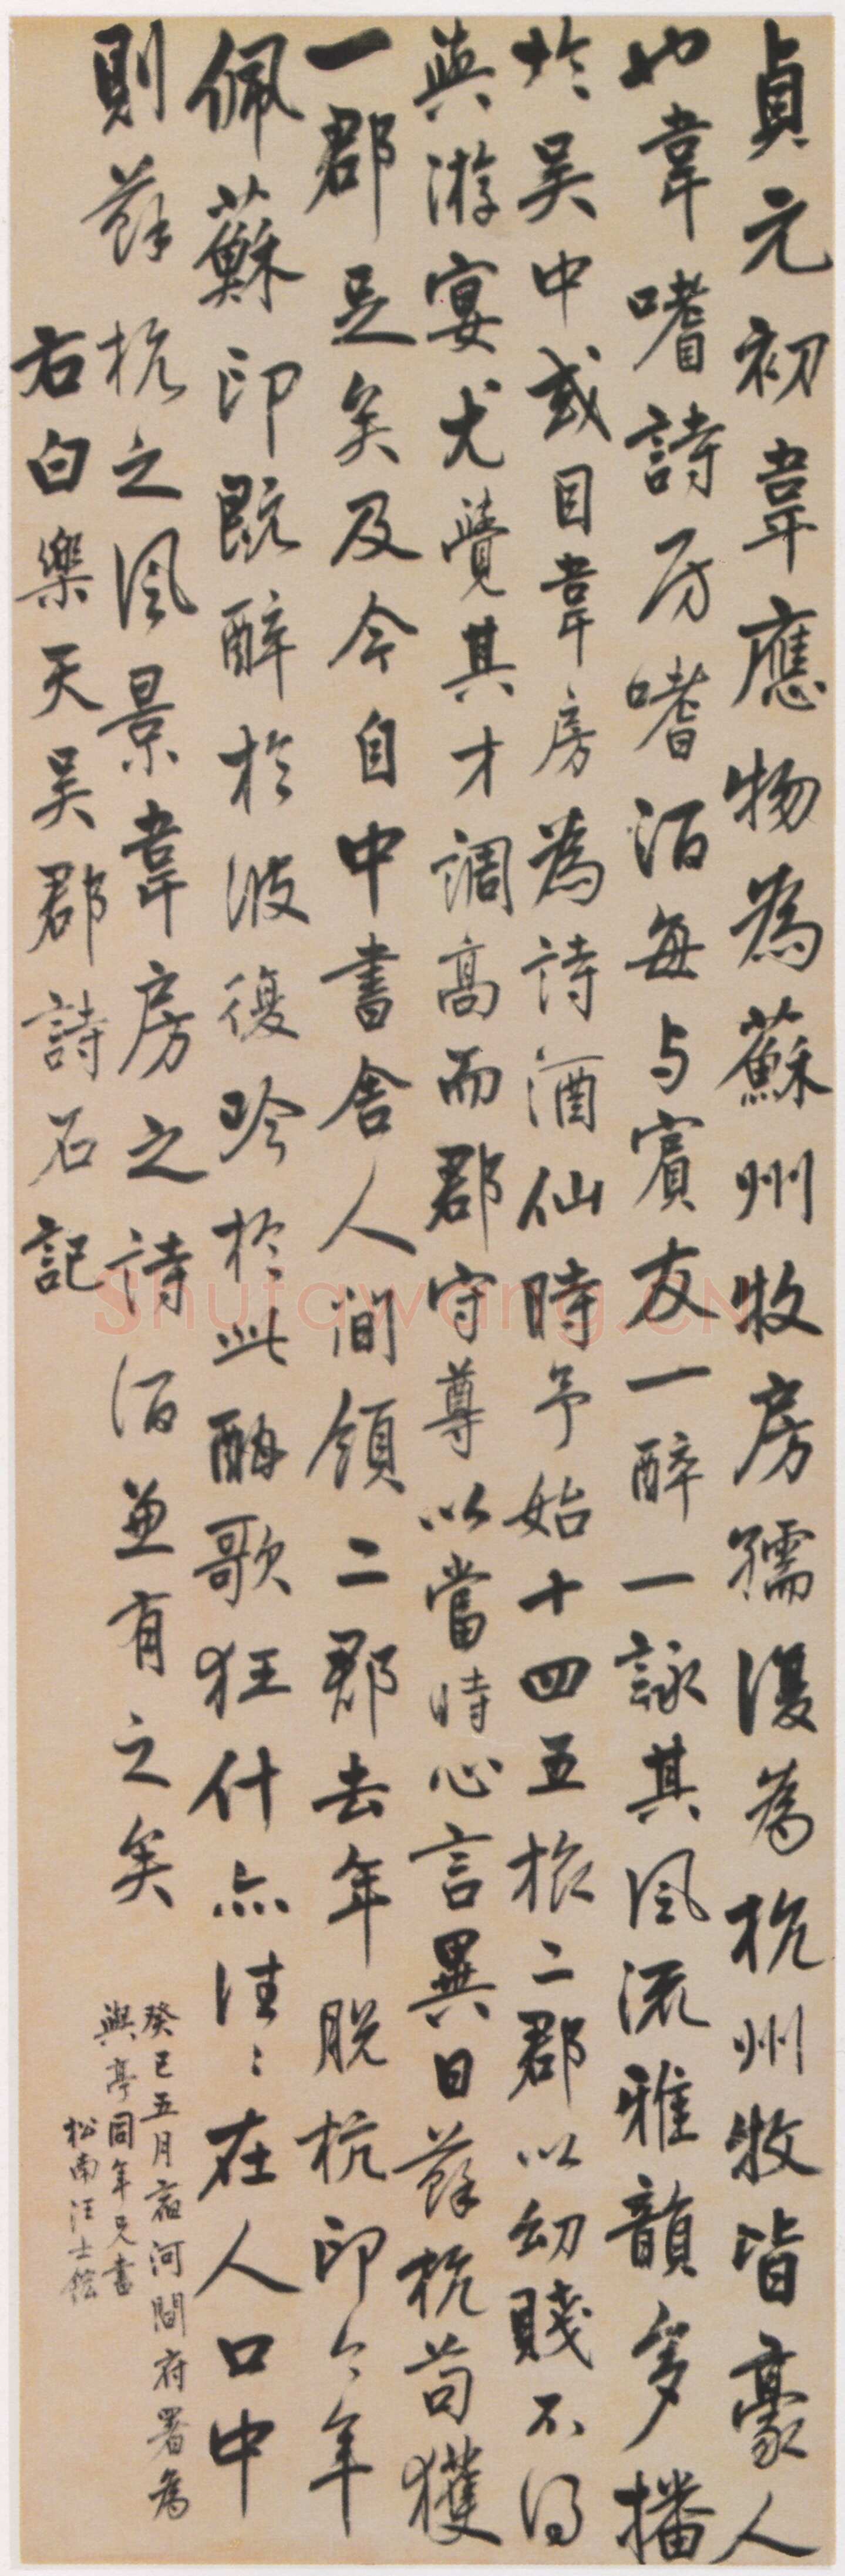 貞元初韋應物為蘇州牧房孺復為杭州牧皆豪人
也韋嗜詩房嗜酒每与賓友一醉一詠其風流雅韻多播
於吴中或目韋房為詩酒仙時予始十四五旅二郡以幼賤不得
與游宴尤覺其才調高而郡守尊以當時心言異日蘇杭苟獲
一郡足矣及今自中書舍人間領二郡去年脱杭印今年
佩蘇印既醉於彼復吟於此酣歌狂什亦往〻在人口中
則蘇杭之風景韋房之詩酒兼有之矣
右白樂天吴郡詩石記
癸巳五月宿河間府署為
與亭同年兄書
松南汪士鋐
Shufawang.CN